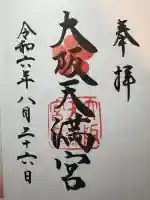 奉拝
大阪天満宮
令和六年八月二十六日